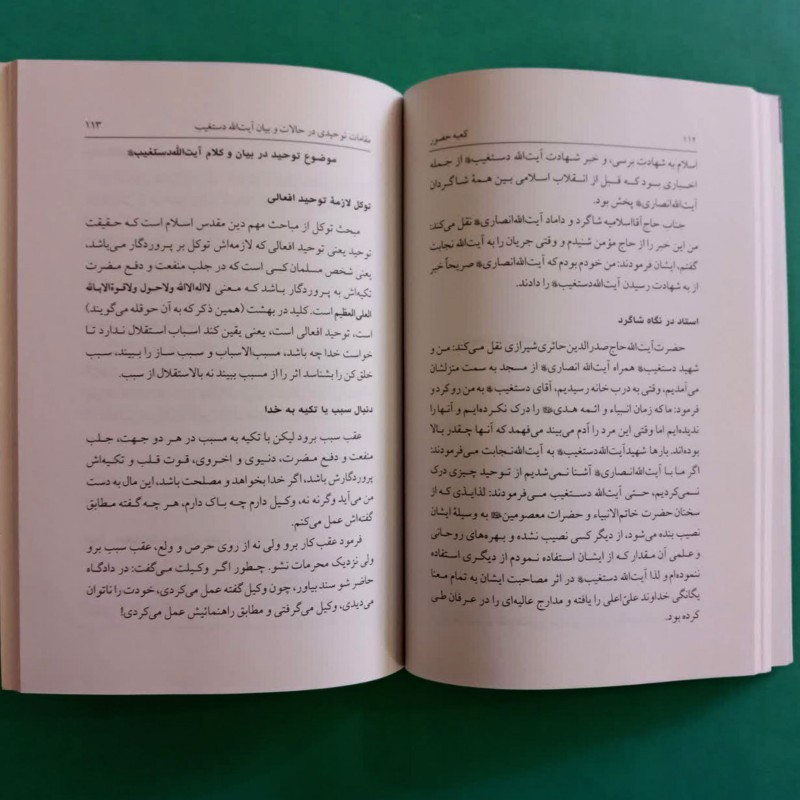 ۱۱۲ کعبه حضور
اسلام به شهادت برسی، و خبر شهادت آیت‌الله دستغیب از جمله
اخباری بود که قبل از انقلاب اسلامی بین همهٔ شاگردان
آیت‌الله انصاری پخش بود.
جناب حاج آقااسلامیه شاگرد و داماد آیت‌الله‌انصاری نقل می‌کند:
من این خبر را از حاج مؤمن شنیدم و وقتی جریان را به آیت‌الله نجابت
گفتم، ایشان فرمودند: من خودم بودم که آیت‌الله انصاری صریحاً خبر
از به شهادت رسیدن آیت‌الله‌دستغیب را دادند.
استاد در نگاه شاگرد
حضرت آیت‌الله حاج صدرالدین حائری شیرازی نقل می‌کند: من و
شهید دستغیب همراه آیت‌الله انصاری از مسجد به سمت منزلشان
می‌آمدیم، وقتی به درب خانه رسیدیم، آقای دستغیب به من رو کرد و
فرمود: ما که زمان انبیاء و ائمه هدی را درک نکرده‌ایم و آنها را
ندیده‌ایم اما وقتی این مرد را آدم می‌بیند می‌فهمد که آنها چقدر بالا
بوده‌اند. بارها شهید آیت‌الله دستغیب به آیت‌الله نجابت می‌فرمودند:
اگر ما با آیت‌الله انصاری آشنا نمی‌شدیم از توحید چیزی درک
نمی‌کردیم، حتی آیت‌الله دستغیب می‌فرمودند: لذایذی که از
سخنان حضرت خاتم‌الانبیاء و حضرات معصومین به وسیلهٔ ایشان
نصیب بنده می‌شود، از دیگر کسی نصیب نشده و بهره‌های روحانی
و علمی آن مقدار که از ایشان استفاده نمودم از دیگری استفاده
ننموده‌ام و لذا آیت‌الله دستغیب در اثر مصاحبت ایشان به تمام معنا
یگانگی خداوند علیّ اعلی را یافته و مدارج عالیه‌ای را در عرفان طی
کرده بود.
مقامات توحیدی در حالات و بیان آیت‌الله دستغیب ۱۱۳
موضوع توحید در بیان و کلام آیت‌الله‌دستغیب
توکل لازمهٔ توحید افعالی
مبحث توکل از مباحث مهم دین مقدس اسلام است که حقیقت
توحید یعنی توحید افعالی که لازمه‌اش توکل بر پروردگار می‌باشد،
یعنی شخص مسلمان کسی است که در جلب منفعت و دفع مضرت
تکیه‌اش به پروردگار باشد که معنی لااله‌الاالله ولاحول ولاقوة‌الابالله
العلی‌العظیم است. کلید در بهشت (همین ذکر که به آن حوقله می‌گویند)
است، توحید افعالی است، یعنی یقین کند اسباب استقلال ندارد تا
خواست خدا چه باشد، مسبب‌الاسباب و سبب ساز را ببیند، سبب
خلق کن را بشناسد اثر را از مسبب ببیند نه بالاستقلال از سبب.
دنبال سبب یا تکیه به خدا
عقب سبب برود لیکن با تکیه به مسبب در هر دو جهت، جلب
منفعت و دفع مضرت، دنیوی و اخروی، قوت قلب و تکیه‌اش
پروردگارش باشد، اگر خدا بخواهد و مصلحت باشد، این مال به دست
من می‌آید وگرنه نه، وکیل دارم چه باک دارم، هر چه گفته مطابق
گفته‌اش عمل می‌کنم.
فرمود عقب کار برو ولی نه از روی حرص و ولع، عقب سبب برو
ولی نزدیک محرمات نشو. چطور اگر وکیلت می‌گفت: در دادگاه
حاضر شو سند بیاور، چون وکیل گفته عمل می‌کردی، خودت را ناتوان
می‌دیدی، وکیل می‌گرفتی و مطابق راهنمائیش عمل می‌کردی!